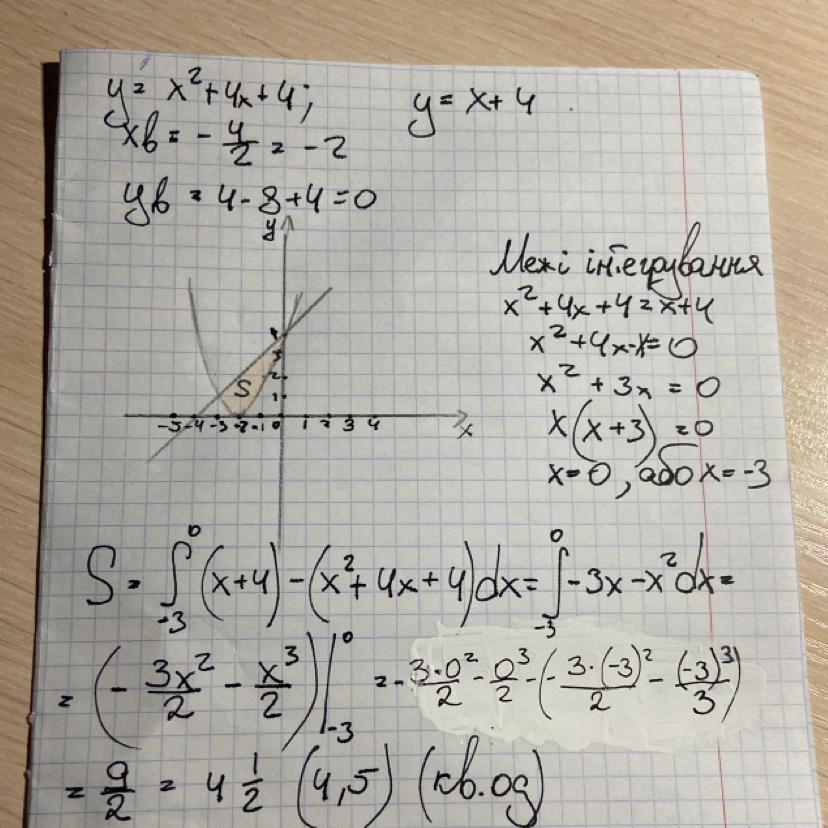 y = x² + 4x + 4; y = x + 4
xв = - 4/2 = -2
yв = 4 - 8 + 4 = 0
y
4
3
2
1
S
-5 -4 -3 -2 -1 0 1 2 3 4
x
Межі інтегрування
x² + 4x + 4 = x + 4
x² + 4x - x = 0
x² + 3x = 0
x(x + 3) = 0
x = 0, або x = -3
S = ∫₋₃⁰ (x+4) - (x² + 4x + 4) dx = ∫₋₃⁰ -3x - x² dx =
= (- 3x²/2 - x³/2) |₋₃⁰ = - 3·0²/2 - 0³/2 - (- 3·(-3)²/2 - (-3)³/3)
= 9/2 = 4 1/2 (4,5) (кв.од)